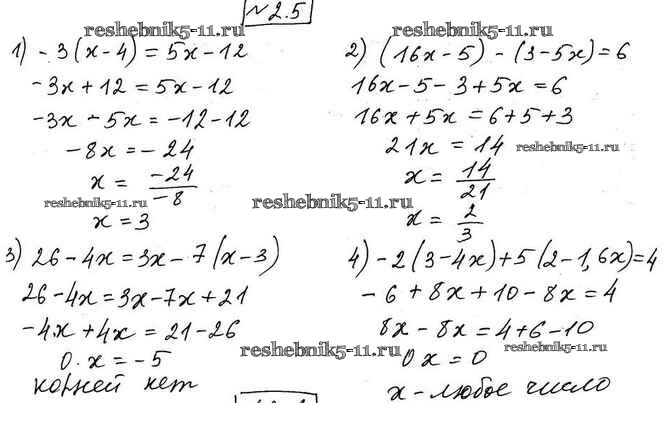 № 2.5
reshebnik5-11.ru
reshebnik5-11.ru
1) -3(x-4) = 5x-12
-3x+12 = 5x-12
-3x-5x = -12-12
-8x = -24
x = -24/-8
reshebnik5-11.ru
x = 3
2) (16x-5)-(3-5x)=6
16x-5-3+5x=6
16x+5x=6+5+3
21x = 14
reshebnik5-11.ru
x = 14/21
reshebnik5-11.ru
x = 2/3
3) 26-4x=3x-7(x-3)
26-4x=3x-7x+21
-4x+4x = 21-26
0·x = -5
reshebnik5-11.ru
корней нет
4) -2(3-4x)+5(2-1,6x)=4
-6+8x+10-8x=4
8x-8x=4+6-10
reshebnik5-11.ru
0x=0
x-любое число